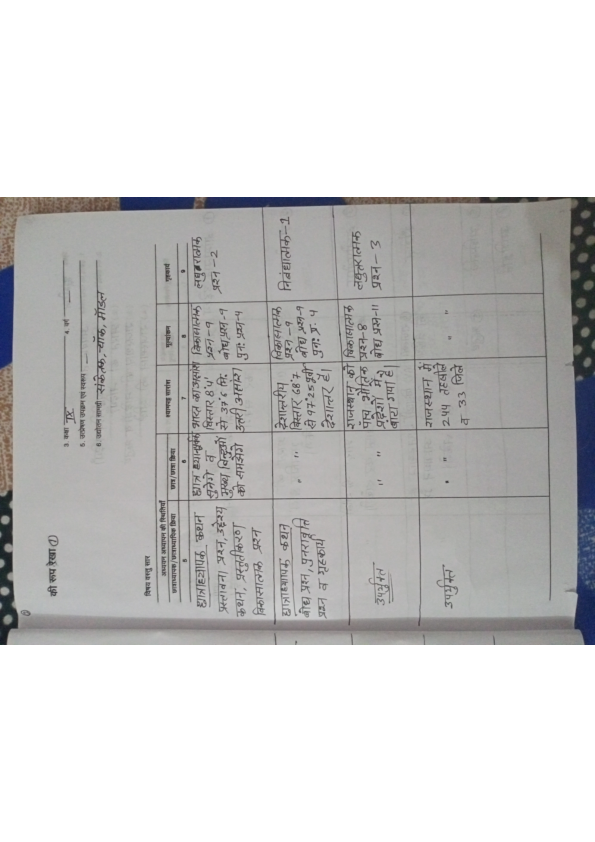 की रूप रेखा ①
3. कक्षा IX
4. वर्ग
5. उपप्रेरक उपादान एवं व्यवधान
6. उद्योतन सामग्री संकेतक, चॉक, मॉडल
विषय वस्तु सार
अध्ययन अध्यापन की स्थितियाँ
छात्राध्यापक/छात्राध्यापिका क्रिया
छात्र/छात्रा क्रिया
श्यामपट्ट सारांश
मूल्यांकन
गृहकार्य
5 6 7 8 9
छात्राध्यापक कथन
प्रस्तावना प्रश्न, उद्देश्य
कथन, प्रस्तुतीकरण
विकासात्मक प्रश्न
छात्र ध्यानपूर्वक
सुनेंगे व
मुख्य बिन्दुओं
को समझेंगे
भारत का अक्षांश
विस्तार 8°4'
से 37°6 मि.
उत्तरी अक्षांश।
विकासात्मक
प्रश्न - 9
बोध प्रश्न - 9
पुनः प्रश्न - 4
लघुत्तरात्मक
प्रश्न - 2
छात्राध्यापक कथन
बोध प्रश्न, पुनरावृति
प्रश्न व गृहकार्य
" "
देशान्तरीय
विस्तार 68°7
से 97°25 पूर्वी
देशान्तर है।
विकासात्मक
प्रश्न - 9
बोध प्रश्न - 9
पुनः प्र. 4
निबंधात्मक - 1
उपर्युक्त
" "
राजस्थान को
पांच भौतिक
प्रदेशों में
बांटा गया है।
विकासात्मक
प्रश्न - 8
बोध प्रश्न - 11
लघुत्तरात्मक
प्रश्न - 3
उपर्युक्त
" "
राजस्थान में
244 तहसीलें
व 33 जिले
" "